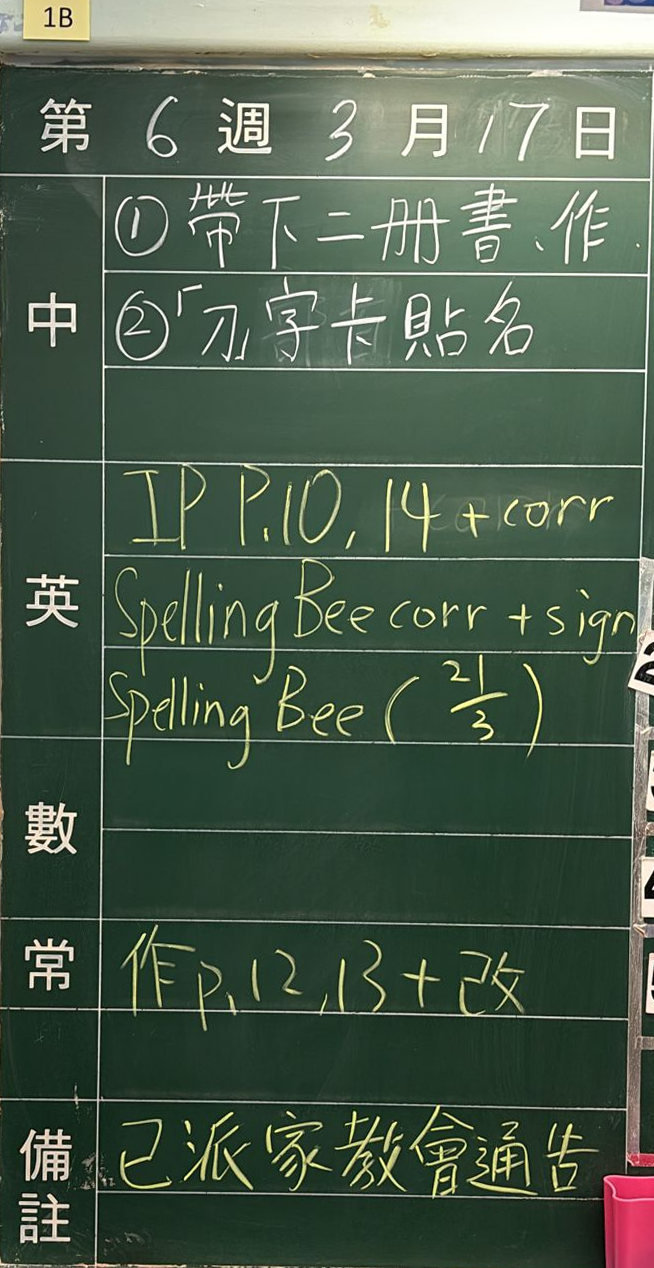 1B
第 6 週 3 月 17 日
中
①帶下二册書、作.
字卡貼名
英
IP P.10, 14 + corr
Spelling Bee corr + sign
Spelling Bee ( 21/3 )
數
常
作p.12,13+改
備註
已派家教會通告